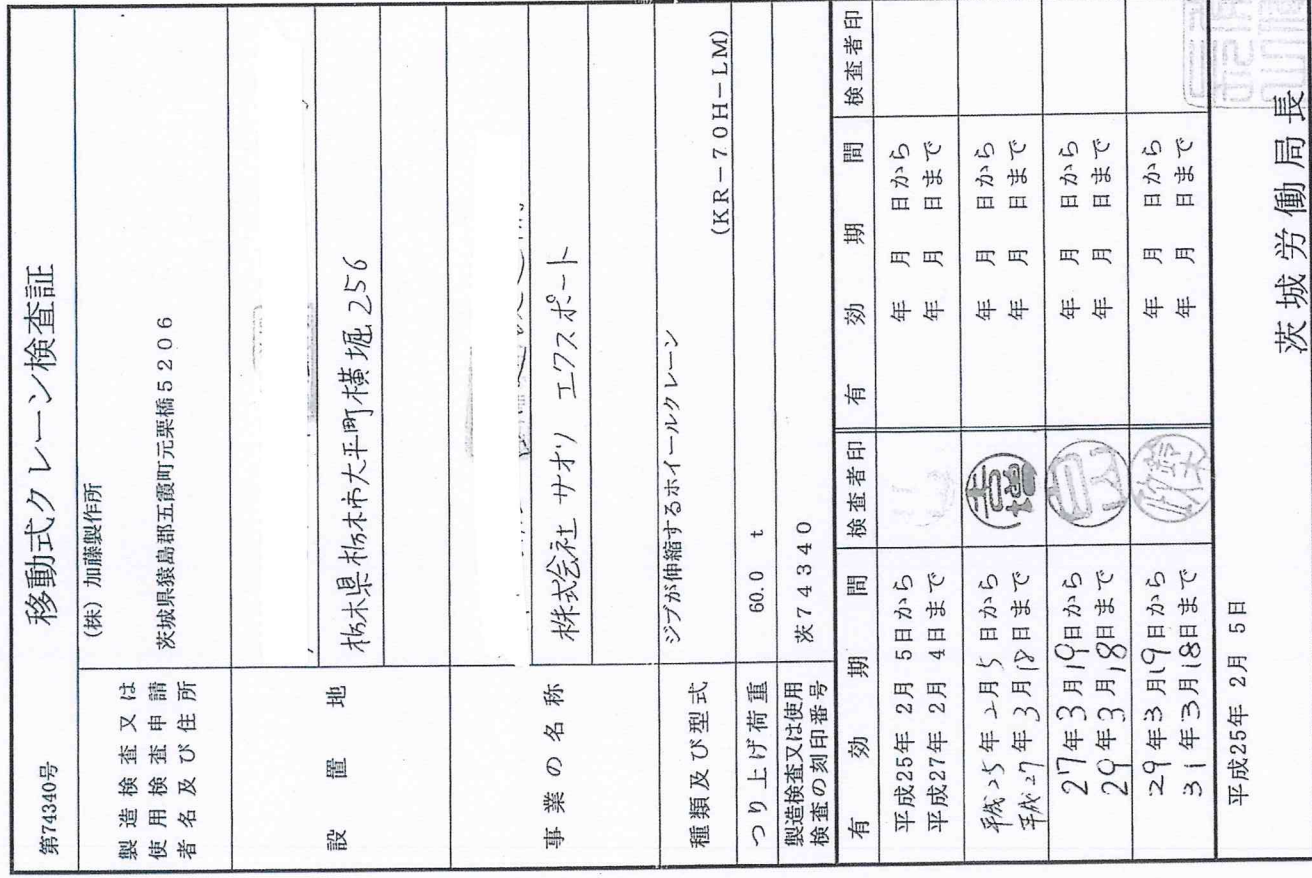 第74340号
移動式クレーン検査証
製造検査又は
使用検査申請
者名及び住所
(株) 加藤製作所
茨城県猿島郡五霞町元栗橋5206
設置地
栃木県栃木市大平町横堀256
事業の名称
株式会社 サオリ エクスポート
種類及び型式
ジブが伸縮するホイールクレーン
(KR-70H-LM)
つり上げ荷重
60.0 t
製造検査又は使用
検査の刻印番号
茨74340
有効期間 検査者印 有効期間 検査者印
平成25年 2月 5日から
平成27年 2月 4日まで
年 月 日から
年 月 日まで
平成25年2月5日から
平成27年3月18日まで
年 月 日から
年 月 日まで
27年3月19日から
29年3月18日まで
年 月 日から
年 月 日まで
29年3月19日から
31年3月18日まで
年 月 日から
年 月 日まで
平成25年 2月 5日
茨城労働局長